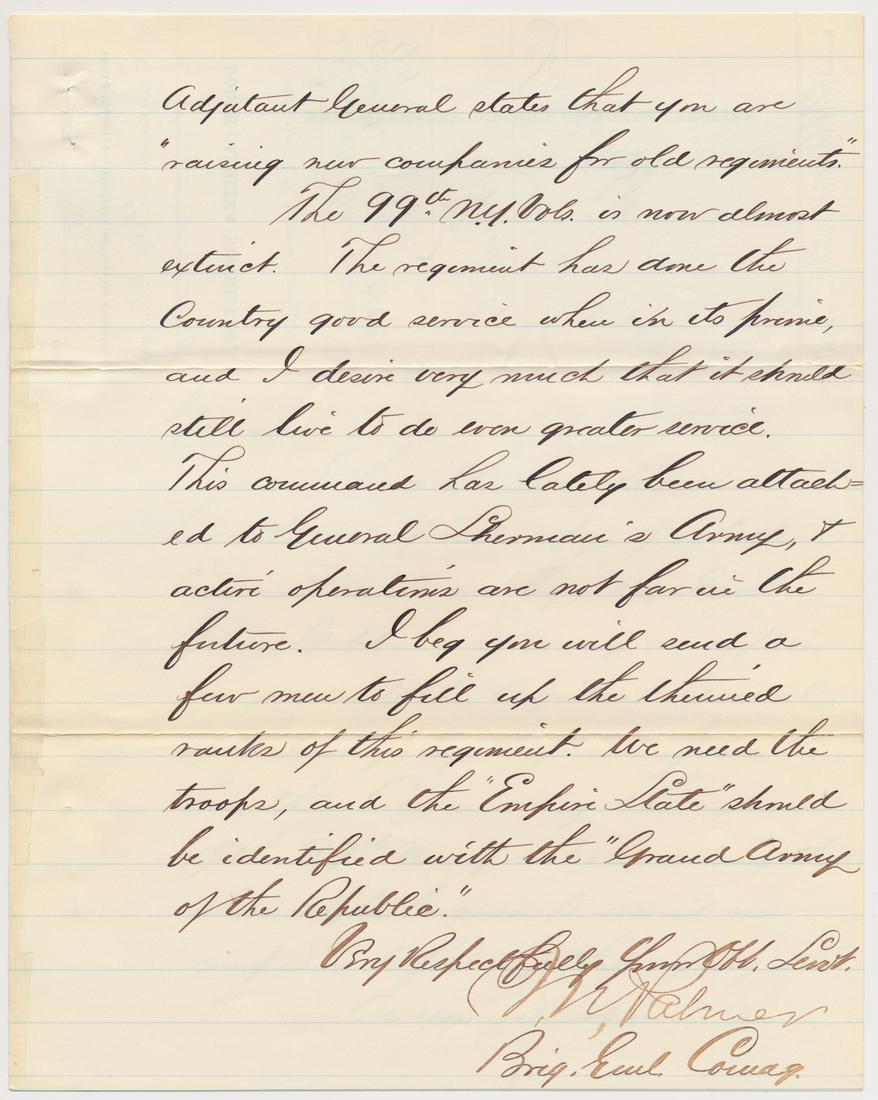 Adjutant General states that you are
"raising new companies for old regiments."
The 99th N.Y. Vols. is now almost
extinct. The regiment has done the
Country good service when in its prime,
and I desire very much that it should
still live to do even greater service.
This command has lately been attach=
ed to General Sherman's Army, &
active operations are not far in the
future. I beg you will send a
few men to fill up the thinned
ranks of this regiment. We need the
troops, and the "Empire State" should
be identified with the "Grand Army
of the Republic."
Very Respectfully Your Obt. Servt.
I. N. Palmer
Brig. Genl. Comdg.